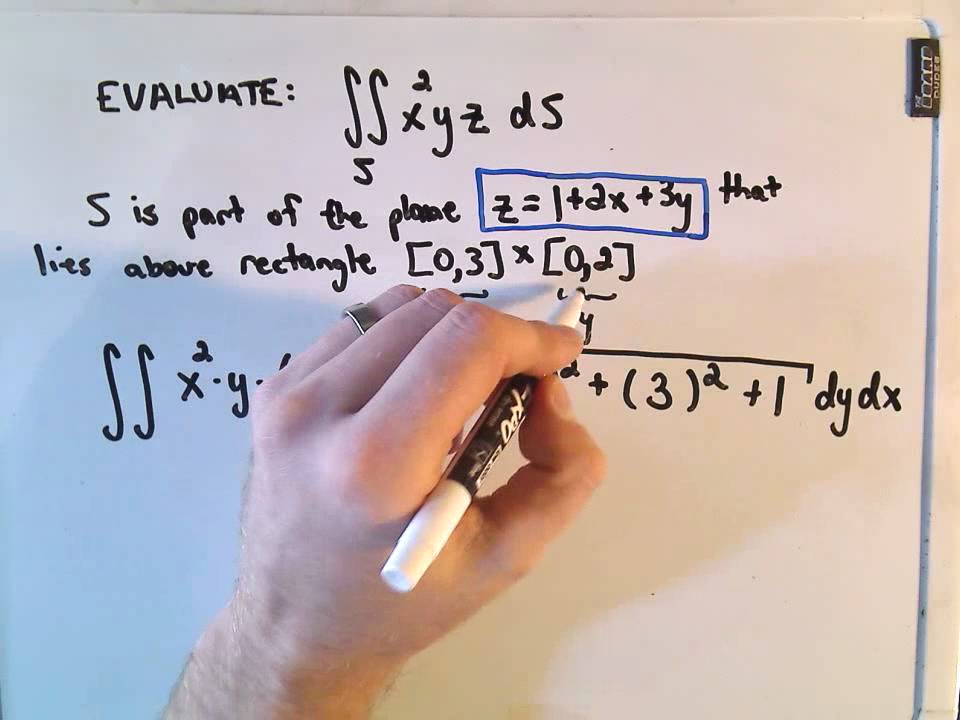 EVALUATE: ∬_S x²yz dS
S is part of the plane z = 1+2x+3y that
lies above rectangle [0,3] × [0,2]
y
∬ x² · y · ² + (3)² + 1 dy dx
EXPO